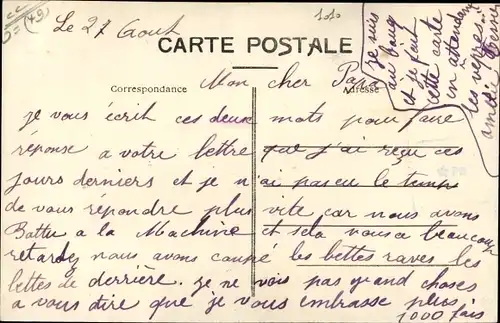 (49)
1010
Le 27 Aout
CARTE POSTALE
Correspondance
Adresse
Mon cher Papa
je vous écrit ces deux mots pour faire
réponse a votre lettre que j'ai reçu ces
jours derniers et je n'ai pas eu le temps
de vous répondre plus vite car nous avons
Battu a la Machine et sela nous a beaucoup
retardez nous avons coupé les bettes raves les
bettes de derrière. je ne vois pas grand choses
a vous dire que je vous embrasse plus
1000 fois
je suis
au bout
et je finit
cette carte
en attendant